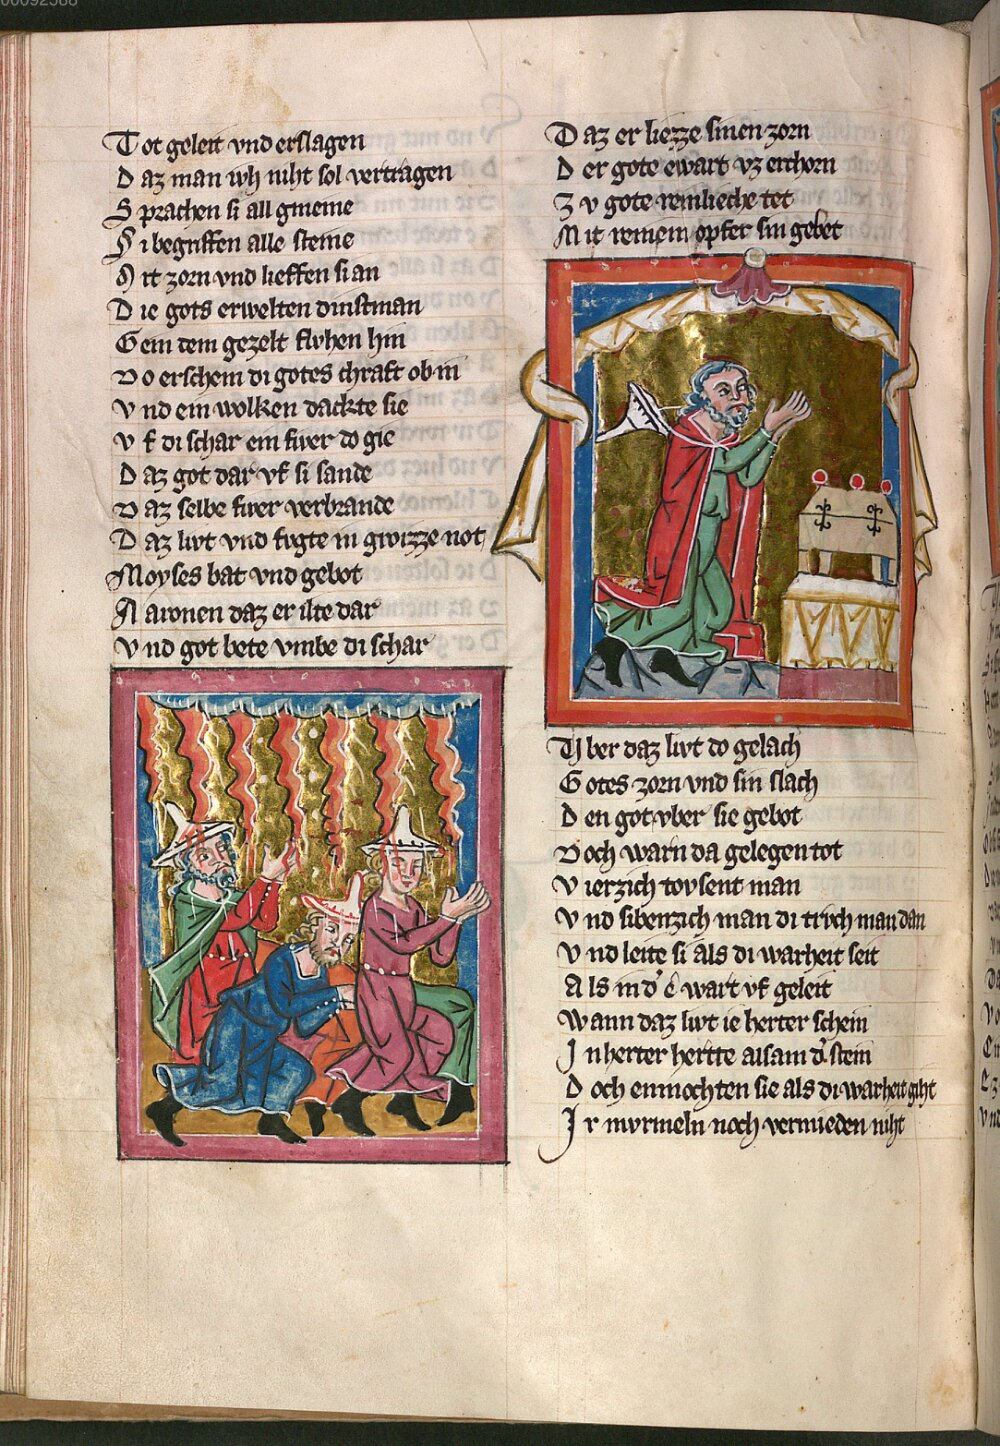 00092588
Tot geleit vnd erslagen
Daz man ivh niht sol vertragen
Sprachen si all gmeine
Si begriffen alle steine
Mit zorn vnd lieffen si an
Die gots erwelten dinstman
Gein dem gezelt flvhen hin
Do erschein di gotes chraft ob in
Vnd ein wolken dackte sie
Vf di schar ein fiver do gie
Daz got dar vf si sande
Daz selbe fiver verbrande
Daz livt vnd fvgte in groizze not
Moyses bat vnd gebot
Aaronen daz er ilte dar
Vnd got bete vmbe di schar
Daz er liezze sinen zorn
Der gote ewart vz erchorn
Zv gote reinlieche tet
Mit reinem opfer sin gebet
Vber daz livt do gelach
Gotes zorn vnd sin slach
Den got vber sie gebot
Doch warn da gelegen tot
Vierzich tovsent man
Vnd sibenzich man di trvch man dan
Vnd leite si als di warheit seit
Als in dˀ ê wart vf geleit
Wann daz livt ie herter schein
In herter hertte alsam dˀ stein
Doch enmochten sie als di warheit giht
Ir mvrmeln noch vermieden niht